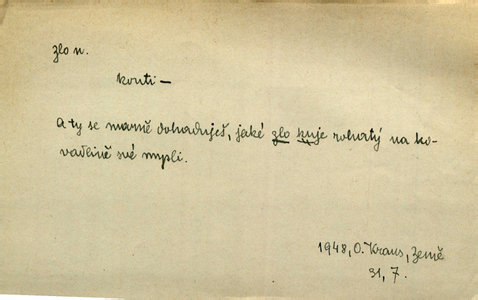 zlo n.
kouti –
A ty se marně dohaduješ, jaké zlo kuje rohatý na ko-
vadlině své mysli.
1948, O. Kraus, Země
31, 7.